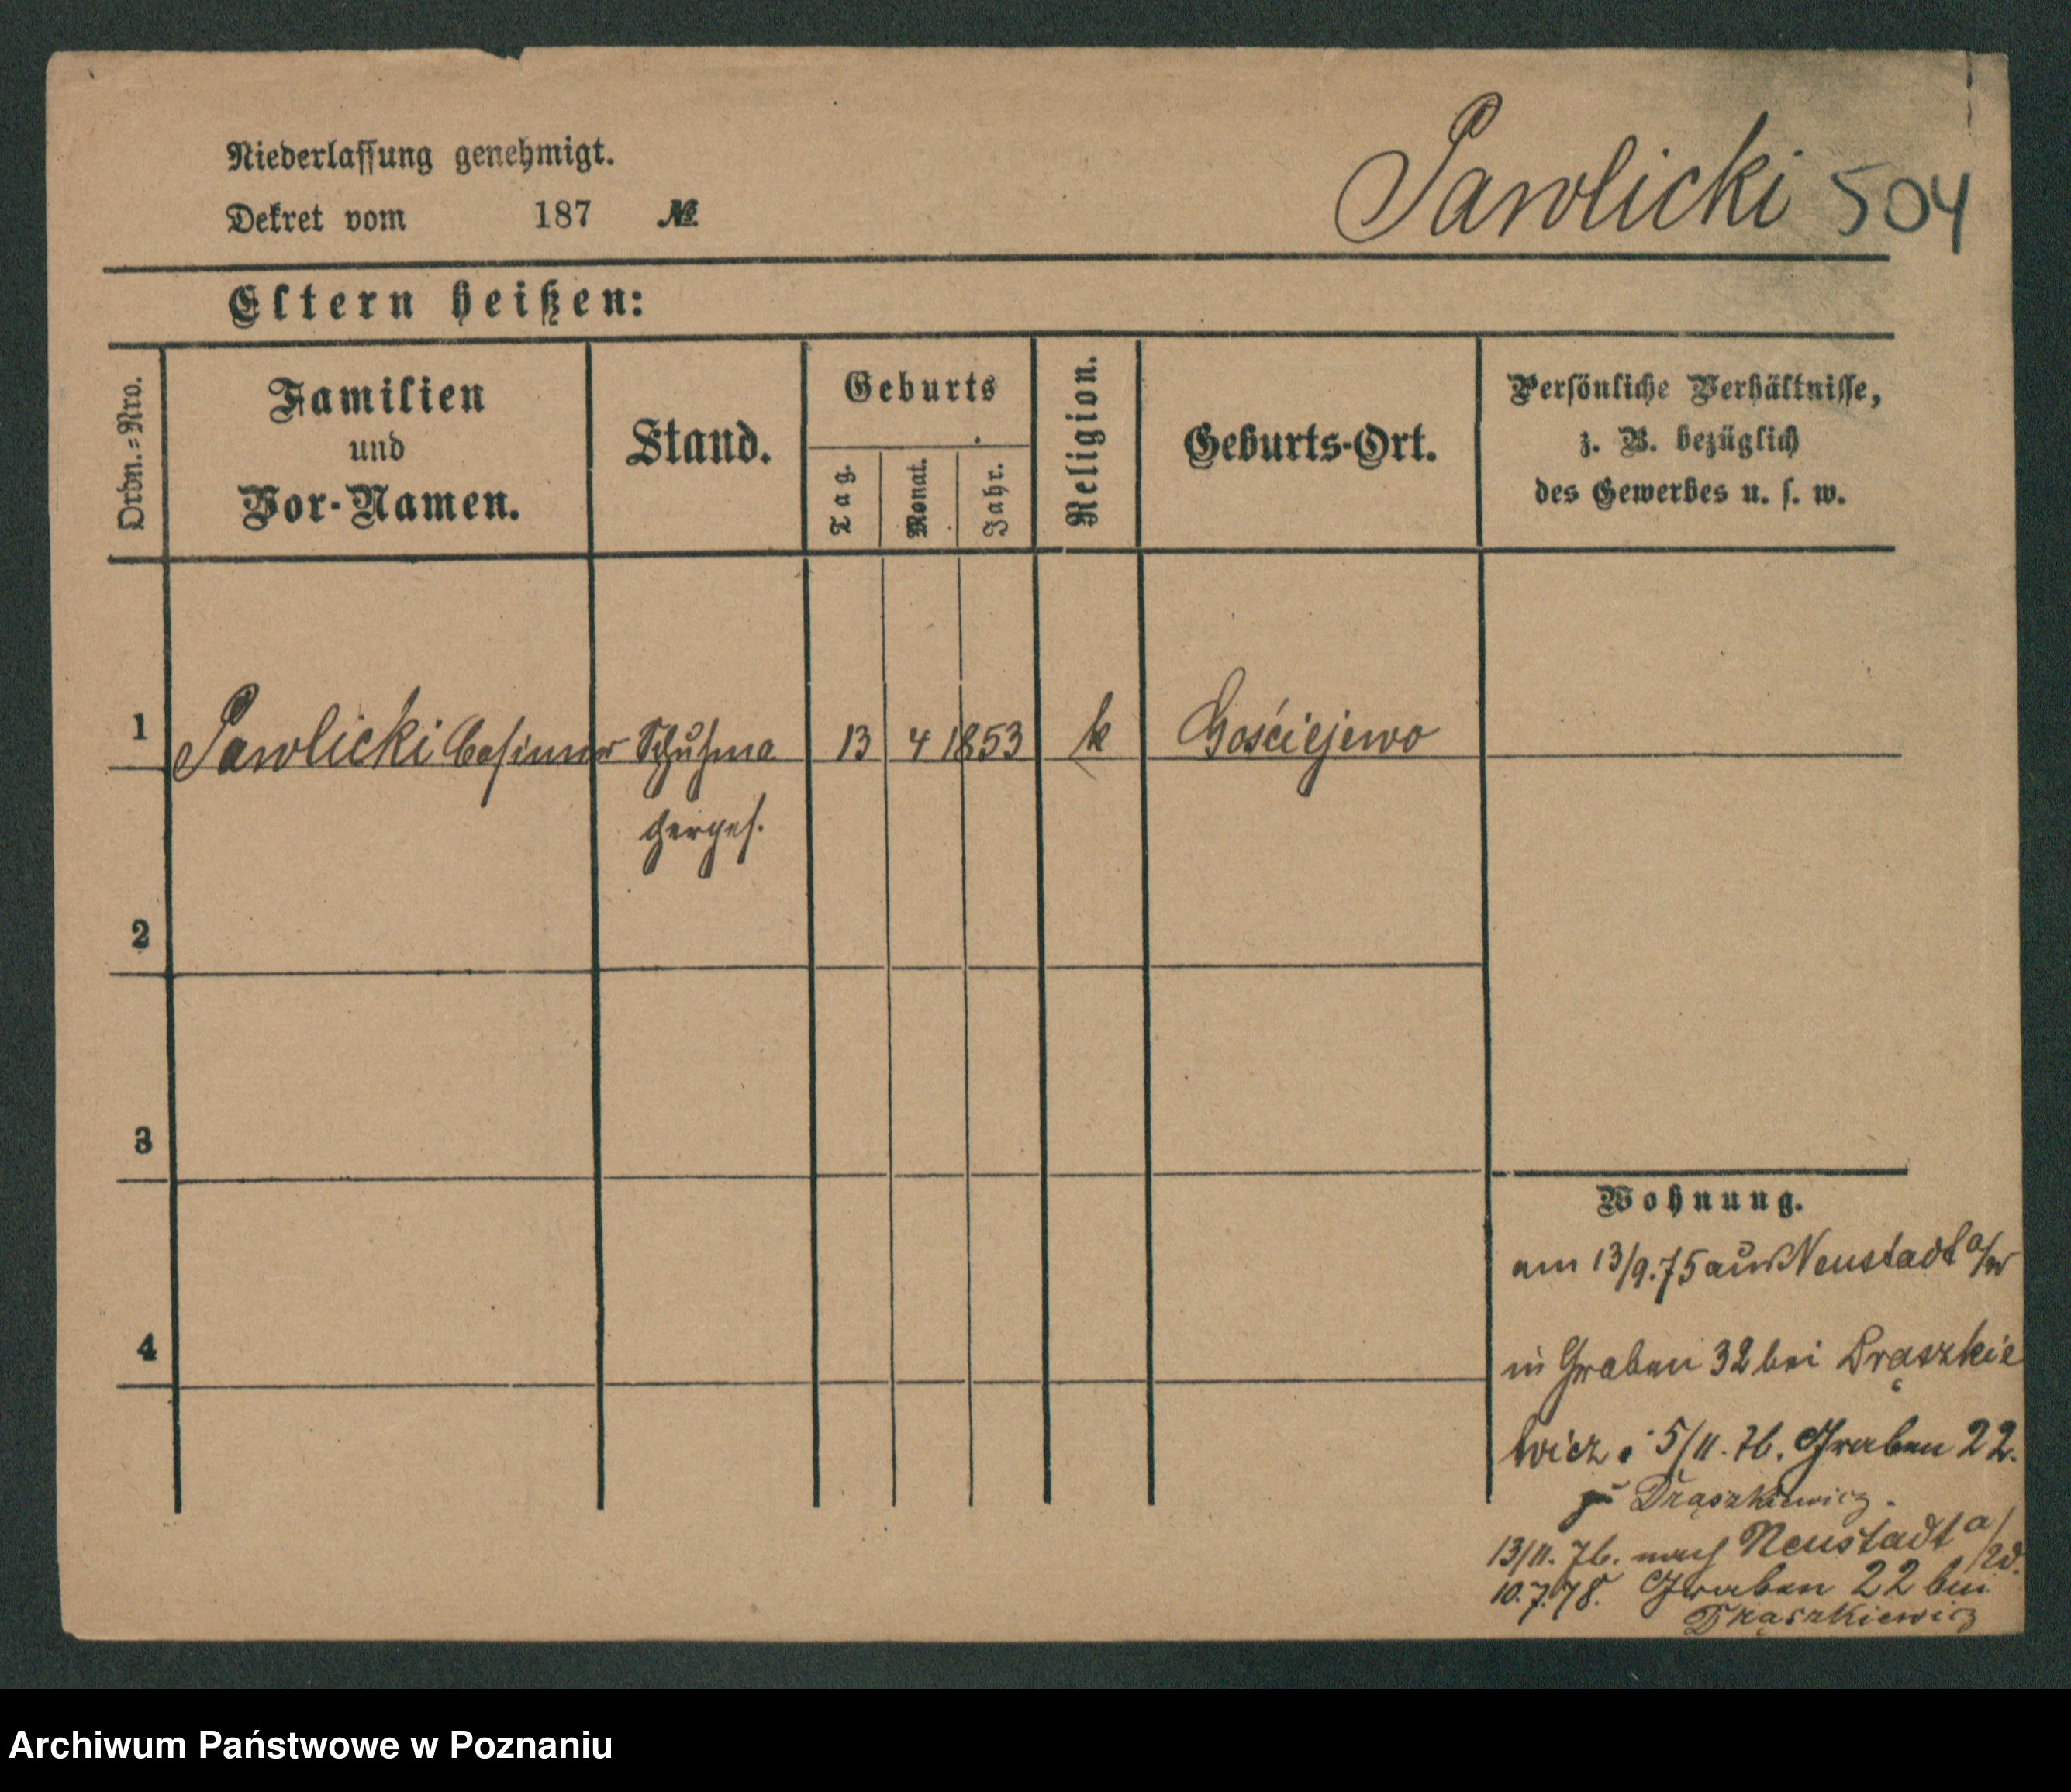 Niederlassung genehmigt.
Dekret vom 187 №
Pawlicki 504
Eltern heißen:
Ordn.=Nro.
Familien
und
Vor-Namen.
Stand.
Geburts
Tag.
Monat.
Jahr.
Religion.
Geburts-Ort.
Persönliche Verhältnisse,
z. B. bezüglich
des Gewerbes u. s. w.
1 Pawlicki Casimir Schuhma 13 4 1853 k Gościejewo
cherges.
2
3
4
Wohnung.
am 13/9.75 aus Neustadt a/W
in Graben 32 bei Drąszkie
wicz. 5/11.76. Graben 22.
zu Drąszkiewicz.
13/11.76. nach Neustadt a/W.
10.7.78. Graben 22 bei
Drąszkiewicz
Archiwum Państwowe w Poznaniu